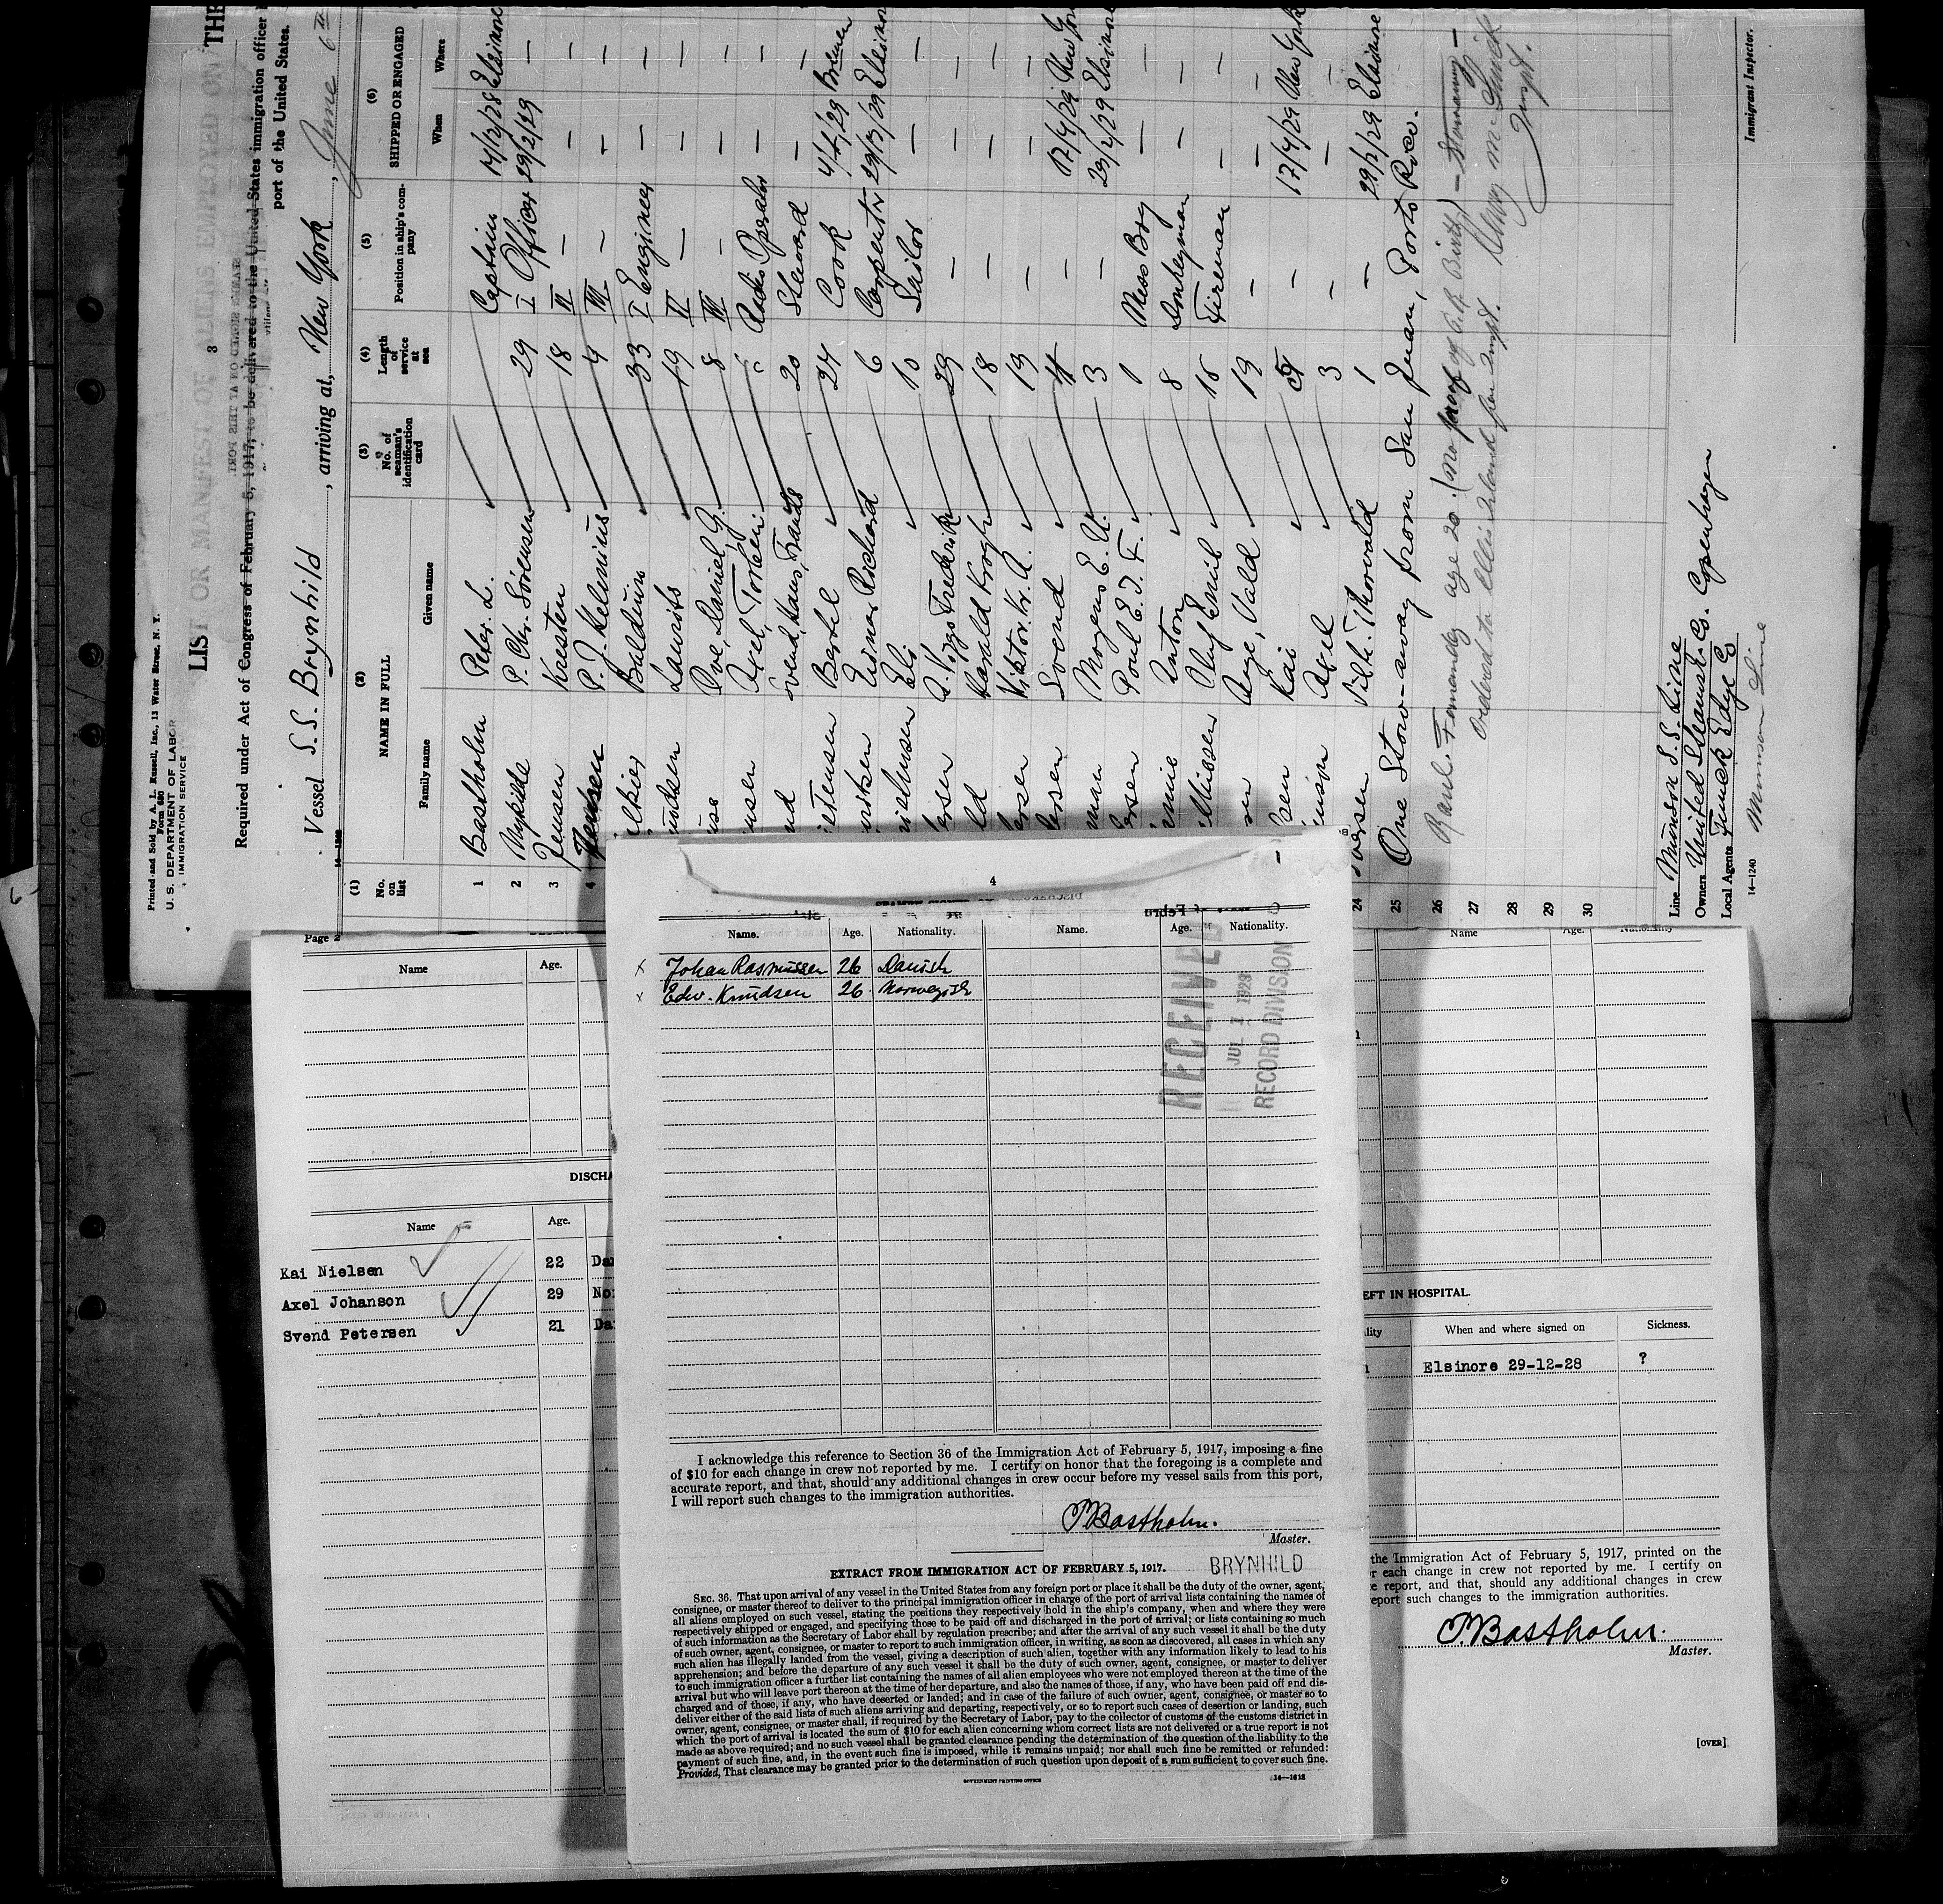 Printed and Sold by A. L. Russell, Inc., 13 Water Street, N. Y.
Form 680
U. S. DEPARTMENT OF LABOR
IMMIGRATION SERVICE
3
LIST OR MANIFEST OF ALIENS EMPLOYED ON THE
Required under Act of Congress of February 5, 1917, to be delivered to the United States immigration officer
port of the United States.
Vessel S.S. Brynhild, arriving at, New York, June 6th
14-1240
(1) No. on list
(2) NAME IN FULL
Family name
Given name
(3) No. of seaman's identification card
(4) Length of service at sea
(5) Position in ship's company
(6) SHIPPED OR ENGAGED
When
Where
1 Bastholm Peter. L. Captain 14/12/28 Elsinore
2 P. Chr. Sörensen 29 I Officer 29/2/29 —
3 Jensen Kresten 18 II — — —
4 Jensen P. J. Helmius 4 III — — —
Balduin 33 I Engineer — —
Laurits 19 II — — —
Ove, Daniel G. 8 III — —
Axel, Torbein Radio Operator — —
Svend, Hans, Frands 20 Steward — —
Bertel 24 Cook 4/4/29 Bremen
Einar Richard 6 Carpenter 29/3/29 Elsinore
Eli 10 Sailor — —
A. Viggo Frederik 29 — — —
Harald Krogh 18 — — —
Viktor. Kr. A. 19 — — —
Svend — 17/4/29 New York
Mogens E. U. 3 — 23/4/29 Elsinore
Poul E. J. F. 1 Mess Boy — —
Anton 8 Donkeyman — —
Oluf Emil 18 Fireman — —
Aage, Vald 19 — — —
Kai — 17/4/29 New York
Axel 3 — — —
24 Iversen Vilh. Thorvald 1 — 29/1/29 Elsinore
25 One Stow-away from San Juan, Porto Rico.
26 Raul Fernandez age 20. (no proof of P.R. Birth)
27 Ordered to Ellis Island for Inspt.
28
29
30
Line Munson S.S. Line
Owners United Steamsh. Co. Copenhagen
Local Agents Funch Edye Co
14—1240
Munson Line
Immigrant Inspector.
Page 2
Name
Age.
DISCHA
Name
Age.
Kai Nielsen 22 Da
Axel Johanson 29 No
Svend Petersen 21 Da
4
Name. Age. Nationality. Name. Age. Nationality.
x Johan Rasmussen 26 Danish
x Edw. Knudsen 26 Norwegish
RECEIVED
JUL 1 1929
RECORD DIVISION
I acknowledge this reference to Section 36 of the Immigration Act of February 5, 1917, imposing a fine
of $10 for each change in crew not reported by me. I certify on honor that the foregoing is a complete and
accurate report, and that, should any additional changes in crew occur before my vessel sails from this port,
I will report such changes to the immigration authorities.
P Bastholm.
Master.
EXTRACT FROM IMMIGRATION ACT OF FEBRUARY 5, 1917.
BRYNHILD
SEC. 36. That upon arrival of any vessel in the United States from any foreign port or place it shall be the duty of the owner, agent,
consignee, or master thereof to deliver to the principal immigration officer in charge of the port of arrival lists containing the names of
all aliens employed on such vessel, stating the positions they respectively hold in the ship's company, when and where they were
respectively shipped or engaged, and specifying those to be paid off and discharged in the port of arrival; or lists containing so much
of such information as the Secretary of Labor shall by regulation prescribe; and after the arrival of any such vessel it shall be the duty
of such owner, agent, consignee, or master to report to such immigration officer, in writing, as soon as discovered, all cases in which any
such alien has illegally landed from the vessel, giving a description of such alien, together with any information likely to lead to his
apprehension; and before the departure of any such vessel it shall be the duty of such owner, agent, consignee, or master to deliver
to such immigration officer a further list containing the names of all alien employees who were not employed thereon at the time of the
arrival but who will leave port thereon at the time of her departure, and also the names of those, if any, who have been paid off and dis-
charged and of those, if any, who have deserted or landed; and in case of the failure of such owner, agent, consignee, or master so to
deliver either of the said lists of such aliens arriving and departing, respectively, or so to report such cases of desertion or landing, such
owner, agent, consignee, or master shall, if required by the Secretary of Labor, pay to the collector of customs of the customs district in
which the port of arrival is located the sum of $10 for each alien concerning whom correct lists are not delivered or a true report is not
made as above required; and no such vessel shall be granted clearance pending the determination of the question of the liability to the
payment of such fine, and, in the event such fine is imposed, while it remains unpaid; nor shall such fine be remitted or refunded:
Provided, That clearance may be granted prior to the determination of such question upon deposit of a sum sufficient to cover such fine.
GOVERNMENT PRINTING OFFICE
14—1612
Name
Age.
Nationality
EFT IN HOSPITAL.
lity
When and where signed on
Sickness.
Elsinore 29-12-28 ?
the Immigration Act of February 5, 1917, printed on the
r each change in crew not reported by me. I certify on
e report, and that, should any additional changes in crew
eport such changes to the immigration authorities.
P Bastholm.
Master.
[OVER]